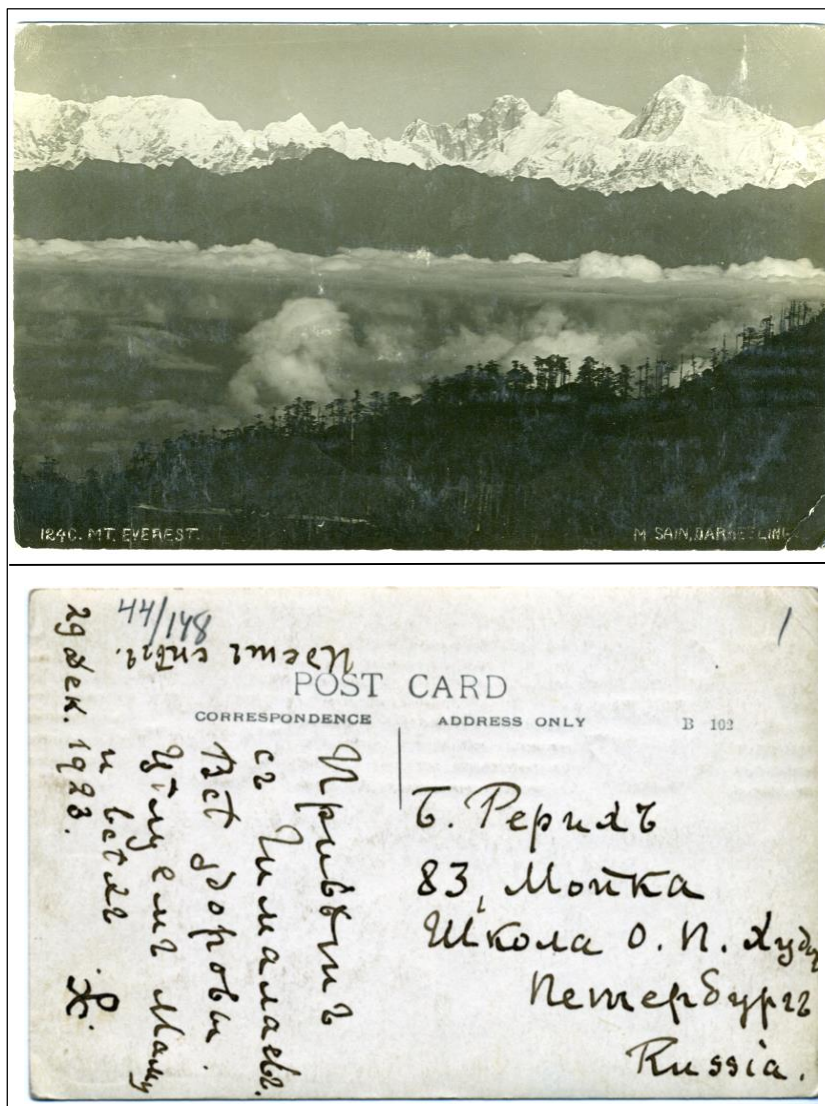 124C. MT. EVEREST.
M SAIN, DARJEELING
44/148
1
POST CARD
CORRESPONDENCE
ADDRESS ONLY
B 102
Привѣтъ
съ Гималаевъ.
Всѣ здоровы.
Цѣлуемъ Маму
и всѣхъ
29 Дек. 1923.
Б. Рерихъ
83, Мойка
Школа О. П. Худ
Петербургъ
Russia.